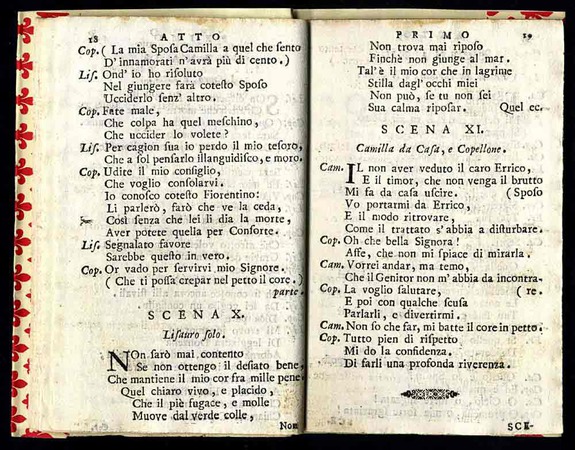 18 ATTO
Cop. ( La mia Sposa Camilla a quel che sento
D'innamorati n'avrà più di cento. )
Lis. Ond' io ho risoluto
Nel giungere farà cotesto Sposo
Ucciderlo senz' altro.
Cop. Fate male,
Che colpa ha quel meschino,
Che uccider lo volete?
Lis. Per cagion sua io perdo il mio tesoro,
Che a sol pensarlo illanguidisco, e moro.
Cop. Udite il mio consiglio,
Che voglio consolarvi.
Io conosco cotesto Fiorentino:
Li parlerò, farò che ve la ceda,
Così senza che lei li dia la morte,
Aver potete quella per Consorte.
Lis. Segnalato favore
Sarebbe questo in vero.
Cop. Or vado per servirvi mio Signore.
( Che ti possa crepar nel petto il core. )
parte.
SCENA X.
Lisauro solo.
NOn sarò mai contento
Se non ottengo il desiato bene,
Che mantiene il mio cor fra mille pene.
Quel chiaro vivo, e placido,
Che il piè fugace, e molle
Muove dal verde colle,
Non
PRIMO 19
Non trova mai riposo
Finchè non giunge al mar.
Tal'è il mio cor che in lagrime
Stilla dagl'occhi miei
Non può, se tu non sei
Sua calma riposar. Quel ec.
SCENA XI.
Camilla da Casa, e Copellone.
Cam. IL non aver veduto il caro Errico,
E il timor, che non venga il brutto
Mi fa da casa uscire, ( Sposo
Vo portarmi da Errico,
E il modo ritrovare,
Come il trattato s'abbia a disturbare.
Cop. Oh che bella Signora!
Affe, che non mi spiace di mirarla.
Cam. Vorrei andar, ma temo,
Che il Genitor non m'abbia da incontra-
Cop. La voglio salutare, ( re.
E poi con qualche scusa
Parlarli, e divertirmi.
Cam. Non so che far, mi batte il core in petto.
Cop. Tutto pien di rispetto
Mi do la confidenza.
Di farli una profonda riverenza.
SCE-